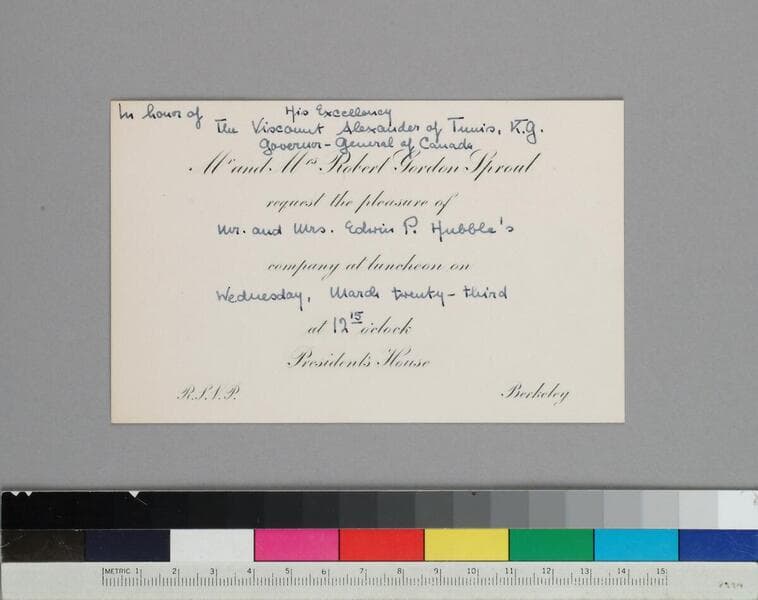 In honor of His Excellency
The Viscount Alexander of Tunis, K.G.
Governor-General of Canada
Mr and Mrs Robert Gordon Sproul
request the pleasure of
Mr. and Mrs. Edwin P. Hubble's
company at luncheon on
Wednesday, March twenty-third
at 12 15 o'clock
President's House
R.S.V.P. Berkeley
METRIC 1 2 3 4 5 6 7 8 9 10 11 12 13 14 15